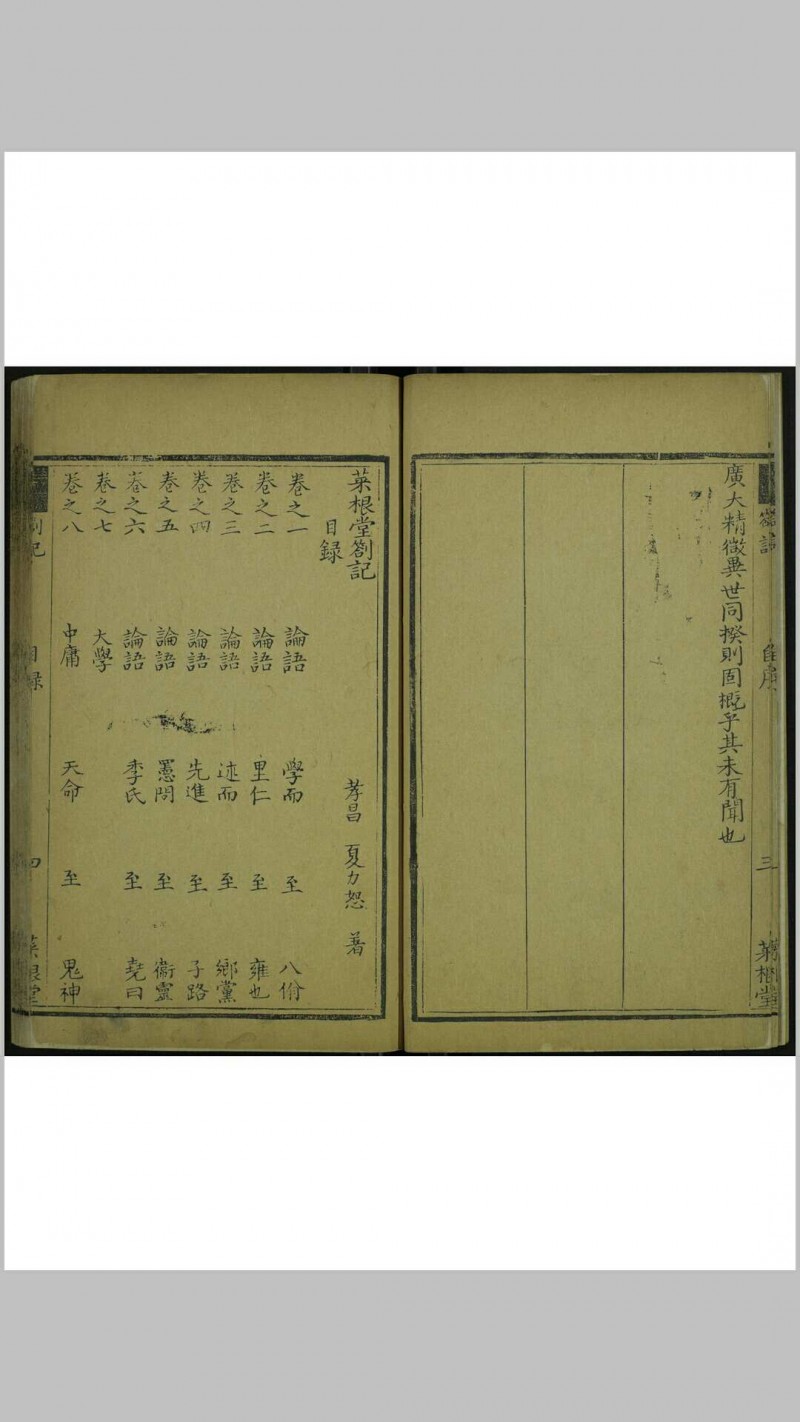 廣大精微異世同揆則固概乎其未有聞也
自序
三
菜根堂
菜根堂劄記
目錄
孝昌 夏力恕 著
卷之一 論語 學而 至 八佾
卷之二 論語 里仁 至 雍也
卷之三 論語 述而 至 鄉黨
卷之四 論語 先進 至 子路
卷之五 論語 憲問 至 衞靈
卷之六 論語 季氏 至 堯曰
卷之七 大學
卷之八 中庸 天命 至 鬼神
劄記
目錄
四
菜根堂